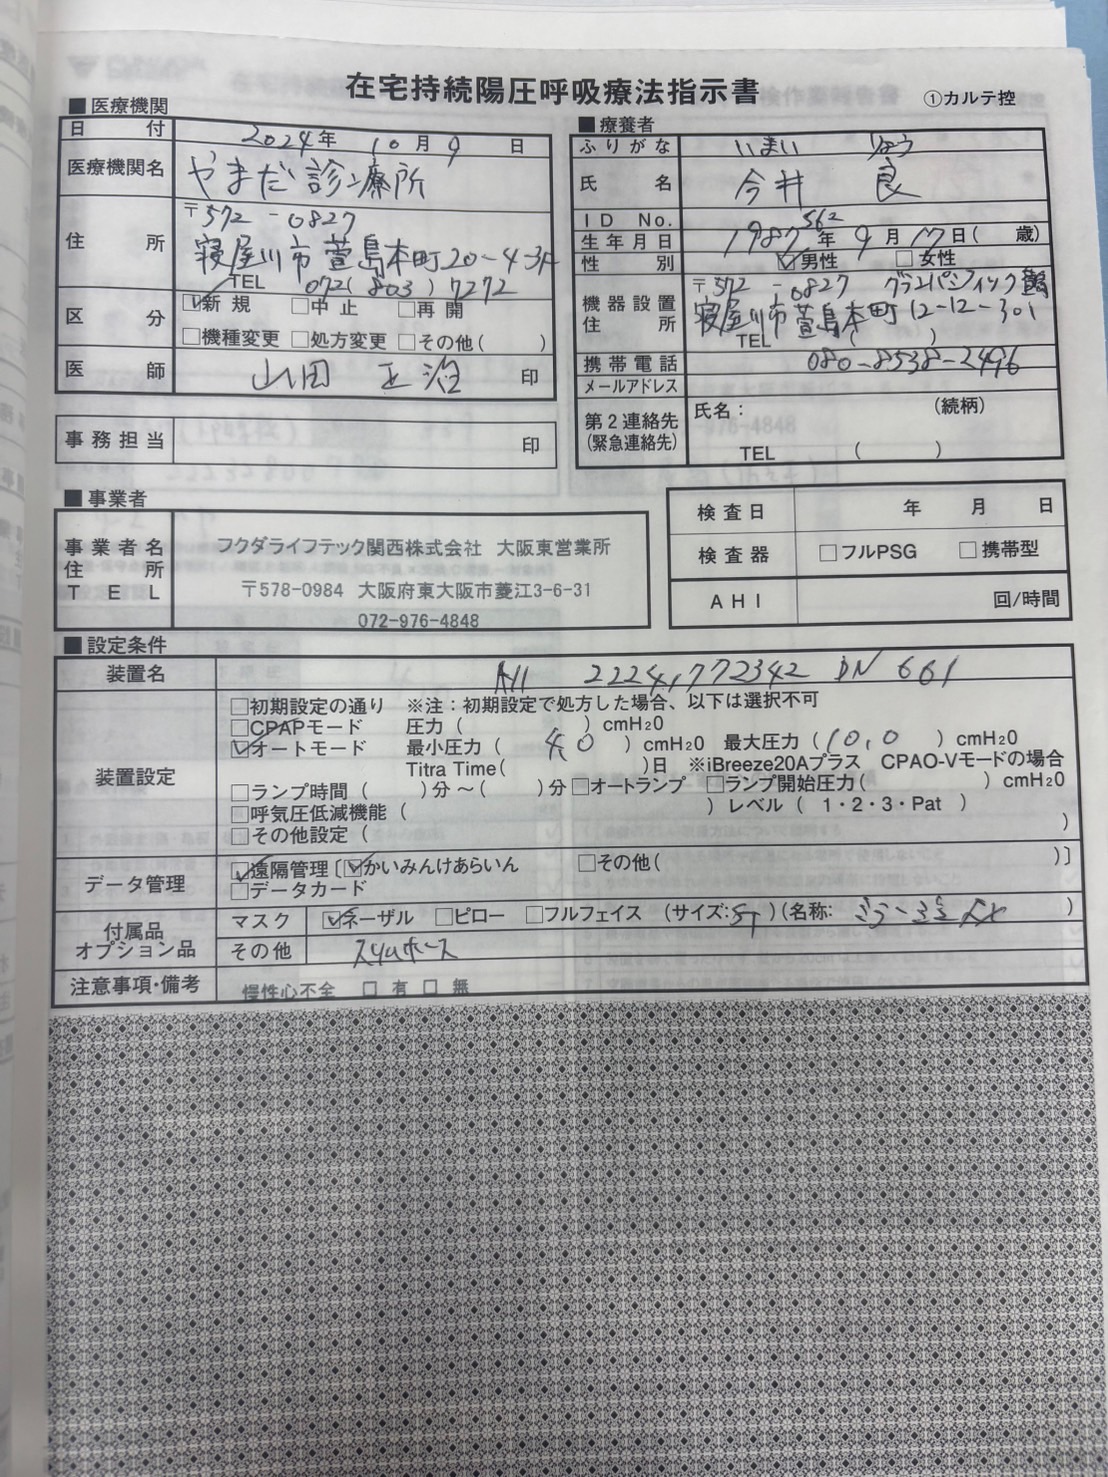 在宅持続陽圧呼吸療法指示書
①カルテ控
■医療機関
日付 2024年 10月 9日
医療機関名 やまだ診療所
住所 〒572-0827
寝屋川市萱島本町20-4-3F
TEL 072(803)7272
区分 ☑新規 □中止 □再開
□機種変更 □処方変更 □その他( )
医師 山田 正治 印
事務担当 印
■療養者
ふりがな いまい りょう
氏名 今井 良
ID No.
S62
生年月日 1987年 9月 17日( 歳)
性別 ☑男性 □女性
機器設置住所 〒572-0827 グランパシフィック
寝屋川市萱島本町12-12-301
TEL ( )
携帯電話 080-8538-2496
メールアドレス
第2連絡先 氏名: (続柄)
(緊急連絡先) TEL ( )
■事業者
事業者名 フクダライフテック関西株式会社 大阪東営業所
住所 〒578-0984 大阪府東大阪市菱江3-6-31
TEL 072-976-4848
検査日 年 月 日
検査器 □フルPSG □携帯型
AHI 回/時間
■設定条件
装置名 A11 22241772342 DN 661
装置設定
□初期設定の通り ※注:初期設定で処方した場合、以下は選択不可
□CPAPモード 圧力( ) cmH₂O
☑オートモード 最小圧力( 4.0 ) cmH₂O 最大圧力(10.0 ) cmH₂O
Titra Time( )日 ※iBreeze20Aプラス CPAO-Vモードの場合
□ランプ時間( )分~( )分 □オートランプ □ランプ開始圧力( ) cmH₂O
□呼気圧低減機能( ) レベル( 1・2・3・Pat )
□その他設定( )
データ管理 ☑遠隔管理〔☑かいみんけあらいん □その他( )〕
□データカード
付属品
オプション品
マスク ☑ネーザル □ピロー □フルフェイス (サイズ: ST )(名称: )
その他 スリムホース
注意事項・備考 慢性心不全 □有 □無